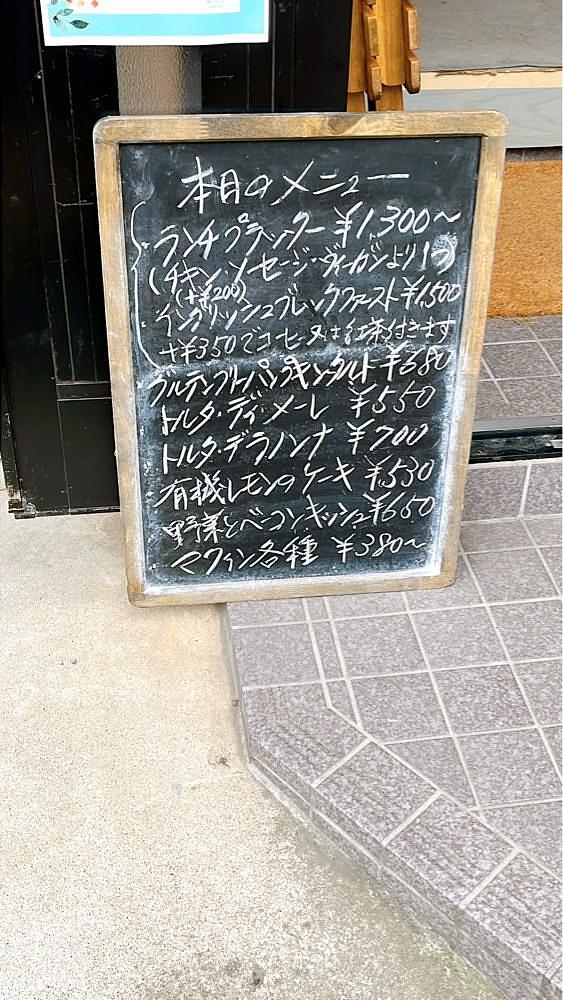 本日のメニュー
ランチプラッター ¥1,300〜
(チキン・ソーセージ・ヴィーガンより1つ)
(+¥200)
イングリッシュブレックファースト ¥1,500
+¥350でコーヒー又は紅茶付きます
グルテンフリーパンプキンタルト ¥680
トルタ・ディ・メーレ ¥550
トルタ・デラノンナ ¥700
有機レモンのケーキ ¥530
野菜とベーコンキッシュ ¥650
マフィン各種 ¥380〜